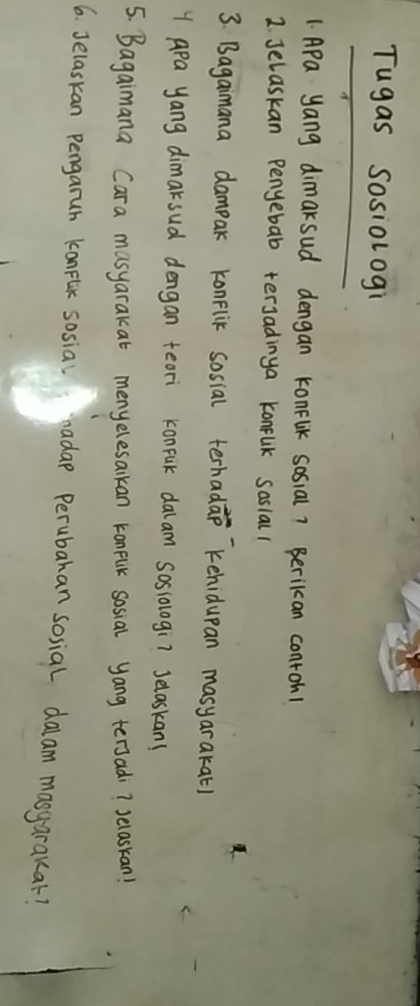 Tugas Sosiologi
1. Apa yang dimaksud dengan konflik sosial? Berikan contoh!
2. Jelaskan Penyebab terjadinya konflik sosial!
3. Bagaimana dampak konflik sosial terhadap kehidupan masyarakat!
4 Apa yang dimaksud dengan teori konflik dalam sosiologi? Jelaskan!
5. Bagaimana Cara masyarakat menyelesaikan konflik sosial yang terjadi? Jelaskan!
6. Jelaskan Pengaruh konflik sosial hadap Perubahan sosial dalam masyarakat?